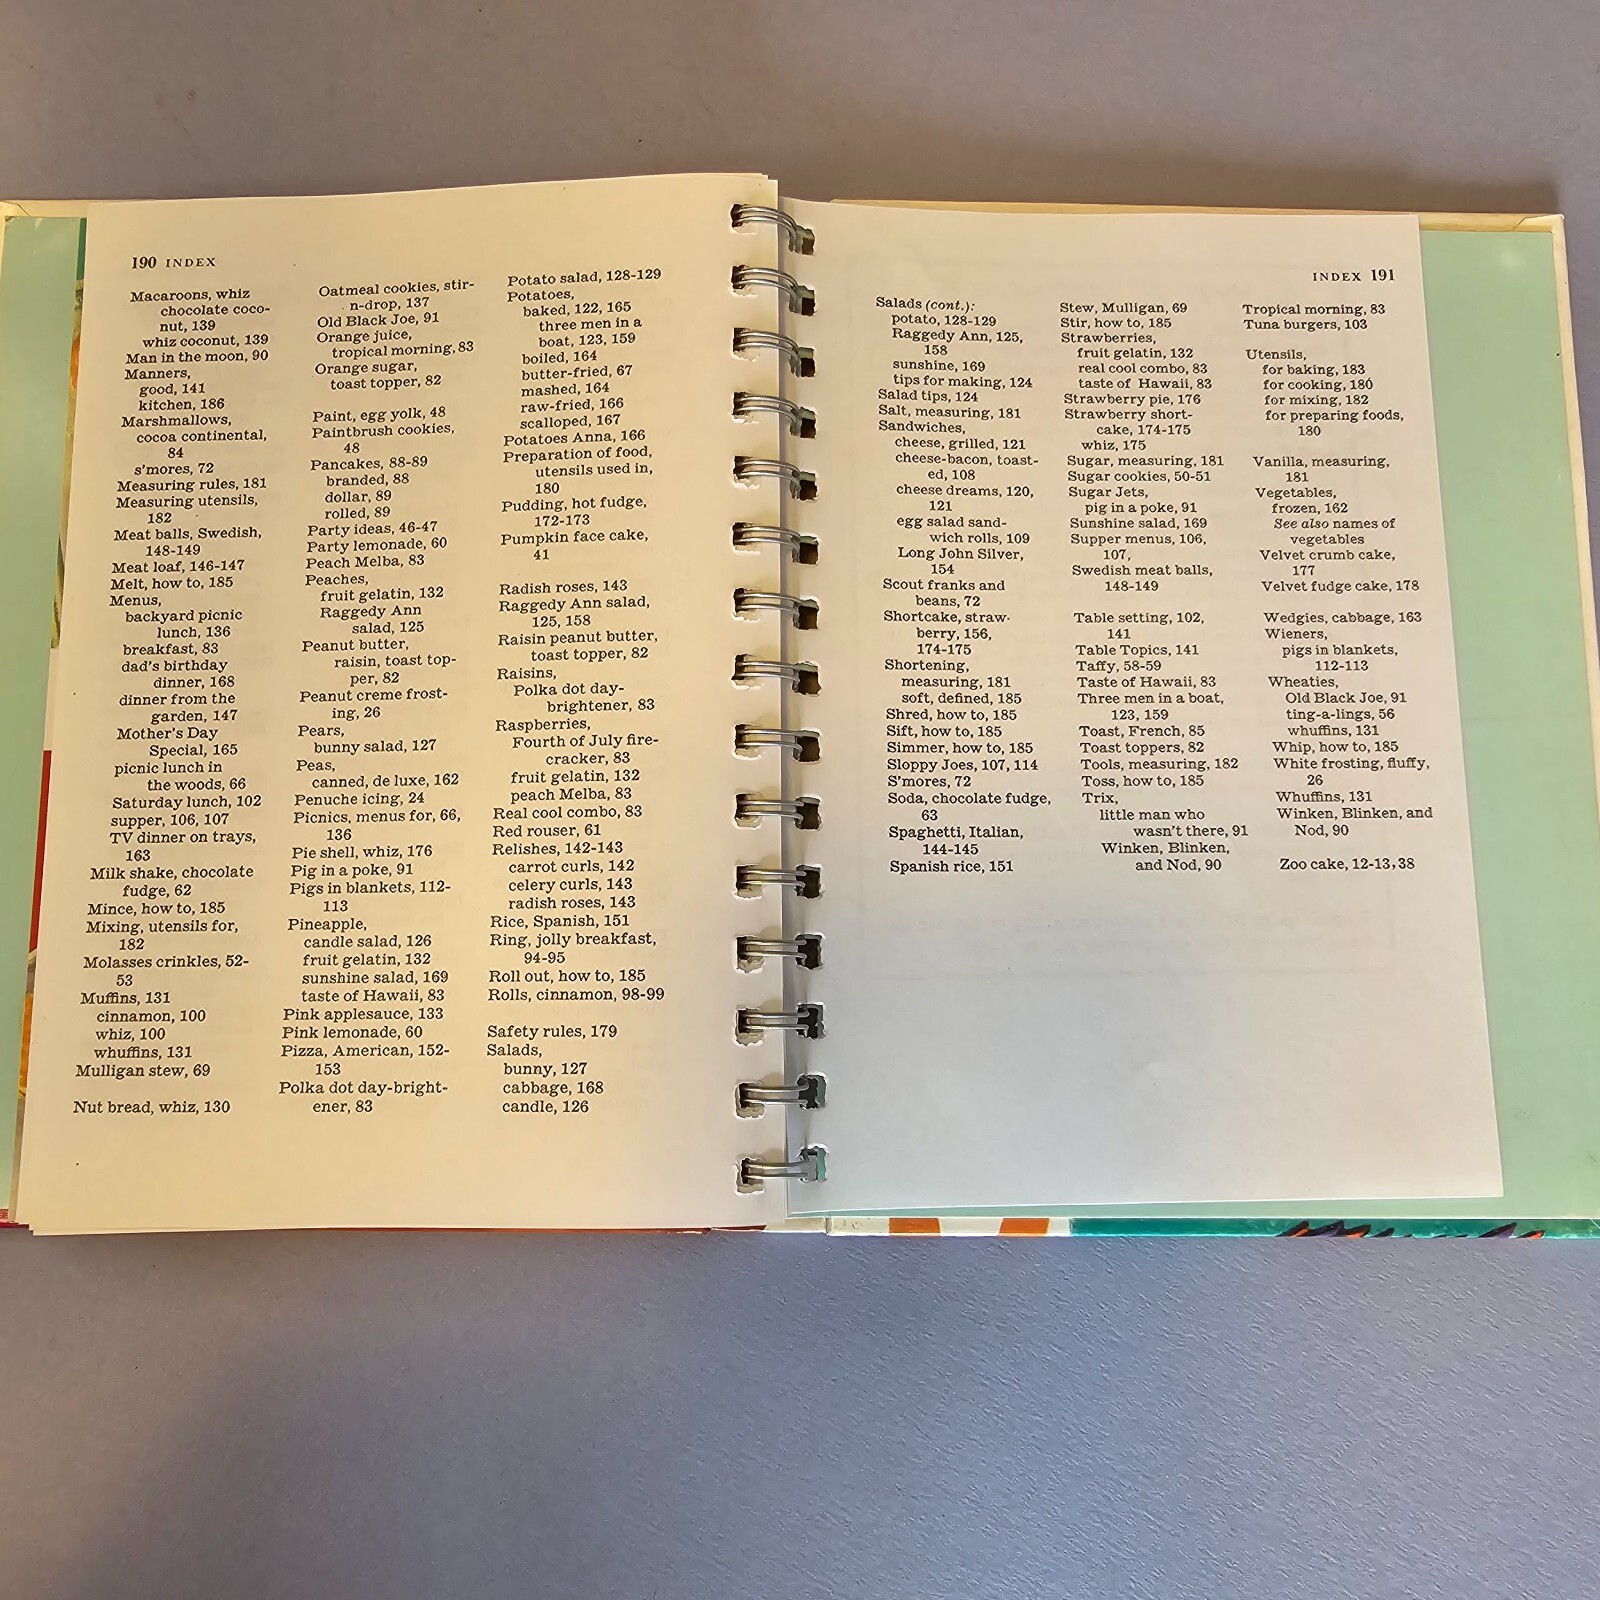 190 INDEX
Macaroons, whiz
chocolate coco-
nut, 139
whiz coconut, 139
Man in the moon, 90
Manners,
good, 141
kitchen, 186
Marshmallows,
cocoa continental,
84
s'mores, 72
Measuring rules, 181
Measuring utensils,
182
Meat balls, Swedish,
148-149
Meat loaf, 146-147
Melt, how to, 185
Menus,
backyard picnic
lunch, 136
breakfast, 83
dad's birthday
dinner, 168
dinner from the
garden, 147
Mother's Day
Special, 165
picnic lunch in
the woods, 66
Saturday lunch, 102
supper, 106, 107
TV dinner on trays,
163
Milk shake, chocolate
fudge, 62
Mince, how to, 185
Mixing, utensils for,
182
Molasses crinkles, 52-
53
Muffins, 131
cinnamon, 100
whiz, 100
whuffins, 131
Mulligan stew, 69
Nut bread, whiz, 130
Oatmeal cookies, stir-
n-drop, 137
Old Black Joe, 91
Orange juice,
tropical morning, 83
Orange sugar,
toast topper, 82
Paint, egg yolk, 48
Paintbrush cookies,
48
Pancakes, 88-89
branded, 88
dollar, 89
rolled, 89
Party ideas, 46-47
Party lemonade, 60
Peach Melba, 83
Peaches,
fruit gelatin, 132
Raggedy Ann
salad, 125
Peanut butter,
raisin, toast top-
per, 82
Peanut creme frost-
ing, 26
Pears,
bunny salad, 127
Peas,
canned, de luxe, 162
Penuche icing, 24
Picnics, menus for, 66,
136
Pie shell, whiz, 176
Pig in a poke, 91
Pigs in blankets, 112-
113
Pineapple,
candle salad, 126
fruit gelatin, 132
sunshine salad, 169
taste of Hawaii, 83
Pink applesauce, 133
Pink lemonade, 60
Pizza, American, 152-
153
Polka dot day-bright-
ener, 83
Potato salad, 128-129
Potatoes,
baked, 122, 165
three men in a
boat, 123, 159
boiled, 164
butter-fried, 67
mashed, 164
raw-fried, 166
scalloped, 167
Potatoes Anna, 166
Preparation of food,
utensils used in,
180
Pudding, hot fudge,
172-173
Pumpkin face cake,
41
Radish roses, 143
Raggedy Ann salad,
125, 158
Raisin peanut butter,
toast topper, 82
Raisins,
Polka dot day-
brightener, 83
Raspberries,
Fourth of July fire-
cracker, 83
fruit gelatin, 132
peach Melba, 83
Real cool combo, 83
Red rouser, 61
Relishes, 142-143
carrot curls, 142
celery curls, 143
radish roses, 143
Rice, Spanish, 151
Ring, jolly breakfast,
94-95
Roll out, how to, 185
Rolls, cinnamon, 98-99
Safety rules, 179
Salads,
bunny, 127
cabbage, 168
candle, 126
INDEX 191
Salads (cont.):
potato, 128-129
Raggedy Ann, 125,
158
sunshine, 169
tips for making, 124
Salad tips, 124
Salt, measuring, 181
Sandwiches,
cheese, grilled, 121
cheese-bacon, toast-
ed, 108
cheese dreams, 120,
121
egg salad sand-
wich rolls, 109
Long John Silver,
154
Scout franks and
beans, 72
Shortcake, straw-
berry, 156,
174-175
Shortening,
measuring, 181
soft, defined, 185
Shred, how to, 185
Sift, how to, 185
Simmer, how to, 185
Sloppy Joes, 107, 114
S'mores, 72
Soda, chocolate fudge,
63
Spaghetti, Italian,
144-145
Spanish rice, 151
Stew, Mulligan, 69
Stir, how to, 185
Strawberries,
fruit gelatin, 132
real cool combo, 83
taste of Hawaii, 83
Strawberry pie, 176
Strawberry short-
cake, 174-175
whiz, 175
Sugar, measuring, 181
Sugar cookies, 50-51
Sugar Jets,
pig in a poke, 91
Sunshine salad, 169
Supper menus, 106,
107,
Swedish meat balls,
148-149
Table setting, 102,
141
Table Topics, 141
Taffy, 58-59
Taste of Hawaii, 83
Three men in a boat,
123, 159
Toast, French, 85
Toast toppers, 82
Tools, measuring, 182
Toss, how to, 185
Trix,
little man who
wasn't there, 91
Winken, Blinken,
and Nod, 90
Tropical morning, 83
Tuna burgers, 103
Utensils,
for baking, 183
for cooking, 180
for mixing, 182
for preparing foods,
180
Vanilla, measuring,
181
Vegetables,
frozen, 162
See also names of
vegetables
Velvet crumb cake,
177
Velvet fudge cake, 178
Wedgies, cabbage, 163
Wieners,
pigs in blankets,
112-113
Wheaties,
Old Black Joe, 91
ting-a-lings, 56
whuffins, 131
Whip, how to, 185
White frosting, fluffy,
26
Whuffins, 131
Winken, Blinken, and
Nod, 90
Zoo cake, 12-13,38